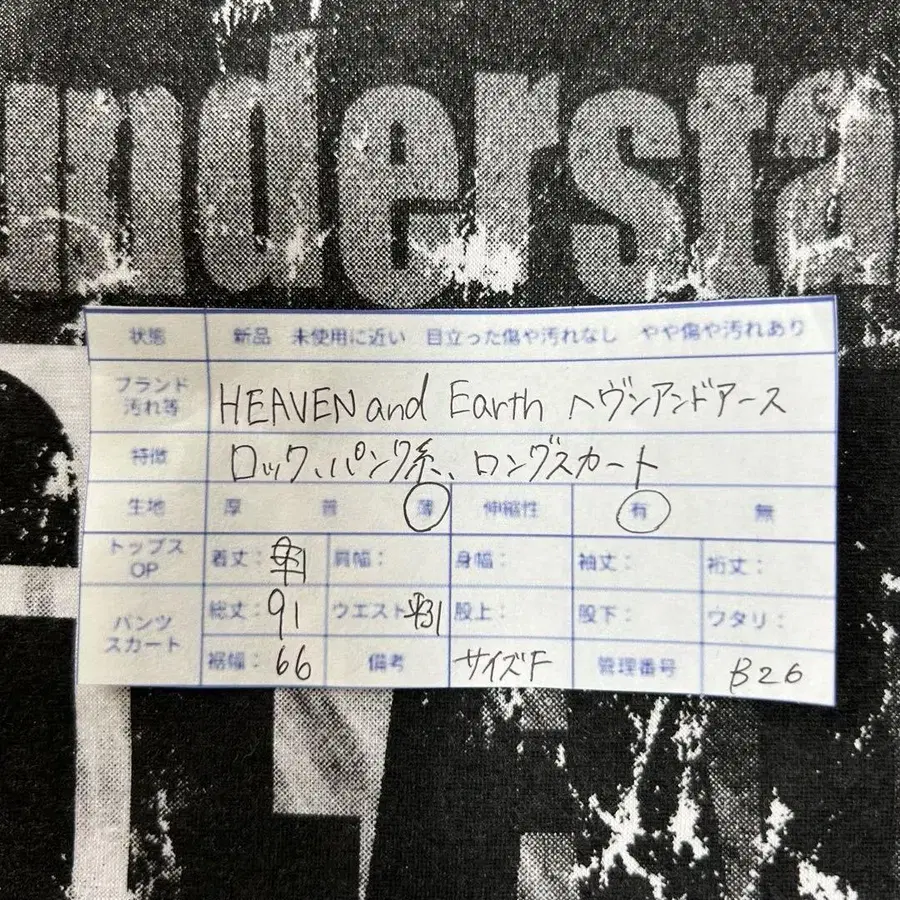 understa
状態 新品 未使用に近い 目立った傷や汚れなし やや傷や汚れあり
ブランド 汚れ等 HEAVEN and Earth ヘヴンアンドアース
特徴 ロック、パンク系、ロングスカート
生地 厚 普 薄 伸縮性 有 無
トップス OP 着丈: 肩幅: 身幅: 袖丈: 裄丈:
パンツ スカート 総丈: 91 ウエスト 平31 股上: 股下: ワタリ:
裾幅: 66 備考 サイズF 管理番号 B26